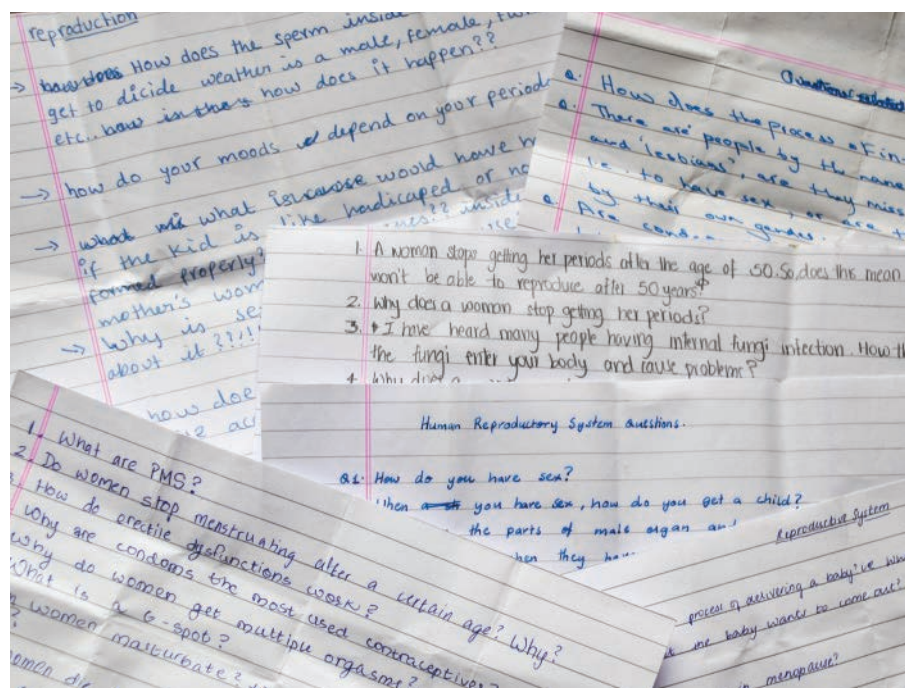 reproduction
→ how does How does the sperm inside
get to dicide weather is a male, female,
etc.. how is the how does it happen??
→ how do your moods depend on your periods
→ what what would have
if the kid is like hadicaped or
formed properly? inside
mother's
→ Why is
about it ???!!
how
Questions related
Q. How does the process of in-
Q. There are people by the name
and 'lesbians', are they
i.e. to have sex, or are
by their own gender.
Q. Are
1. A woman stops getting her periods after the age of 50. So does this mean
won't be able to reproduce after 50 years?
2. Why does a woman stop getting her periods?
3. I have heard many people having internal fungi infection. How
the fungi enter your body and cause problems?
4. Why
Human Reproductory System Questions.
Q1. How do you have sex?
When you have sex, how do you get a child?
the parts of male organ and
then they
1. What are PMS?
2. Do women stop menstruating after a certain age? Why?
How do erectile dysfunctions work?
Why are condoms the most used contraceptives?
Why do women get multiple orgasms?
What is a G-spot?
women masturbate?
Reproductive System
process of delivering a baby?
the baby wants to come out?
in menopause?